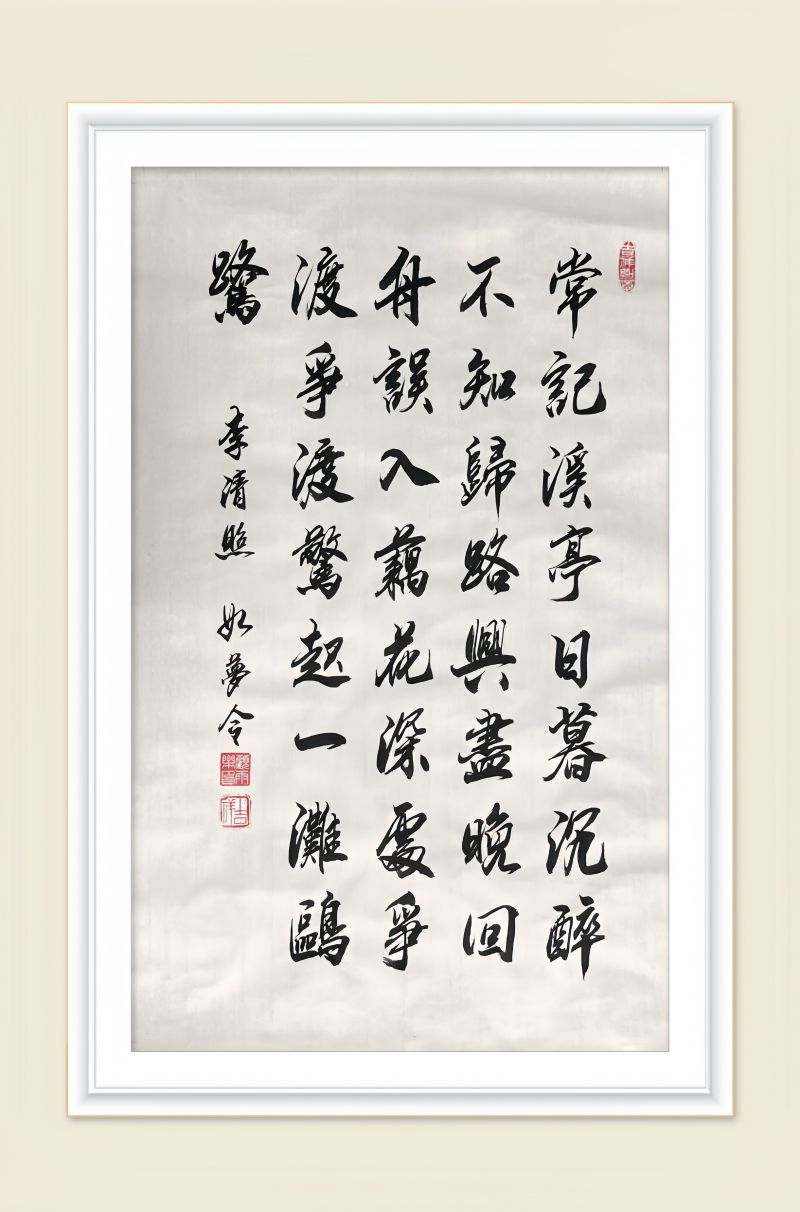 常記溪亭日暮沉醉
不知歸路興盡晚回
舟誤入藕花深處爭
渡爭渡驚起一灘鷗
鷺
李清照 如夢令